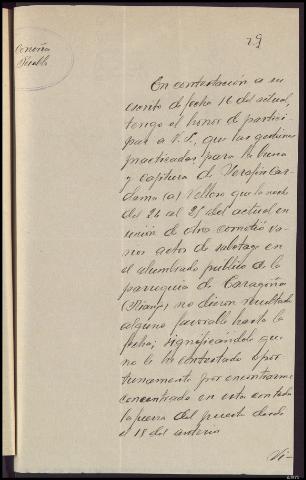 29
En contestación a su
escrito de fecha 16 del actual,
tengo el honor de partici-
par a V.S., que las gestiones
practicadas para la busca
y captura de Serafin Car-
dama (a) Velloso que la noche
del 24 al 25 del actual en
unión de otro cometió va-
rios actos de sabotage en
el alumbrado publico de la
parroquia de Caragoña
no dieron resultado
alguno favorable hasta la
fecha; significandole que
no le he contestado opor-
tunamente por encontrarme
concentrado en esta con toda
la fuerza del puesto desde
el 18 del anterior
Vi-